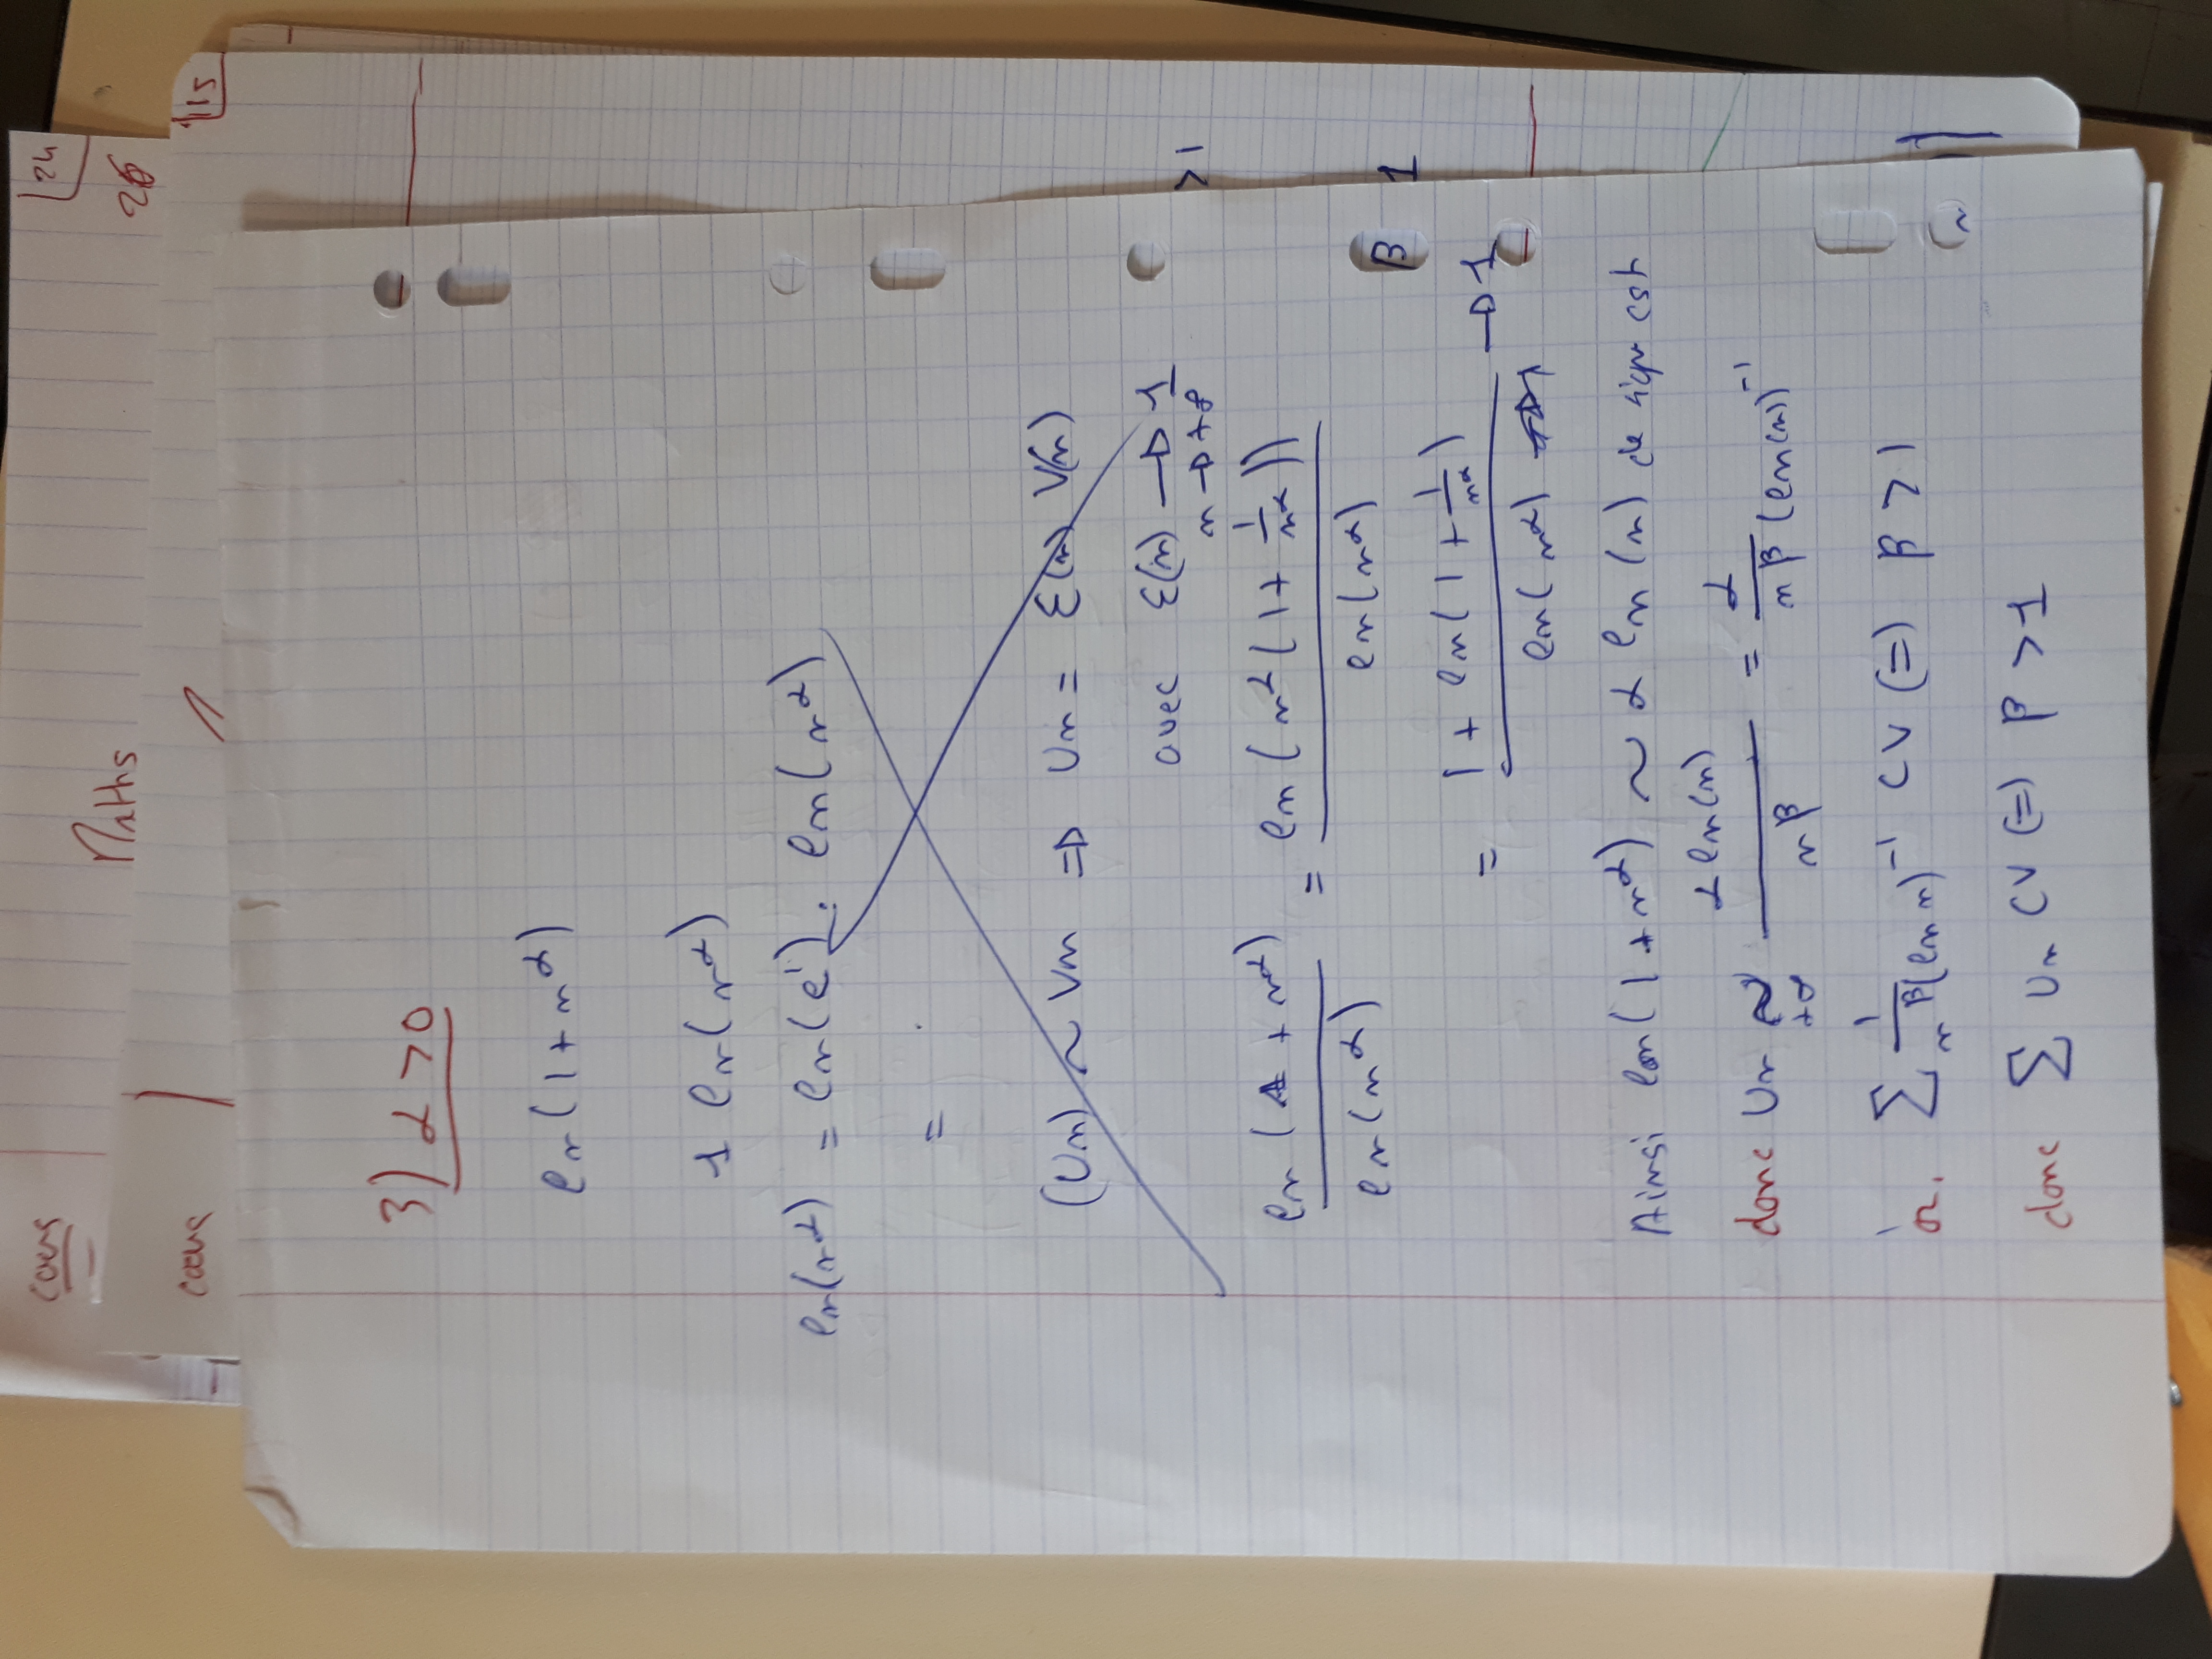 cours
24
Maths
26
cours
1
115
> 1
1
3) α > 0
ln(1 + n^α)
1 ln(n^α)
ln(n^α) = ln(e^1) . ln(n^α)
=
(Un) ~ Vn => Un = Ɛ(n) V(n)
avec Ɛ(n) → 1
n → +∞
ln(1 + n^α) / ln(n^α) = ln(n^α(1 + 1/n^α)) / ln(n^α)
β
= 1 + ln(1 + 1/n^α) / ln(n^α) → 1
Ainsi ln(1 + n^α) ~ α ln(n) de signe cst
donc Un ~ +∞ α ln(n) / n^β = α / n^β (ln(n))^-1
or. Σ 1 / n^β (ln n)^-1 CV (=) β > 1
donc Σ Un CV (=) β > 1